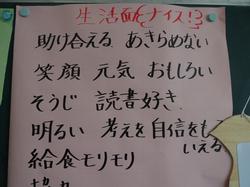 生活面もナイス!?
助け合える あきらめない
笑顔 元気 おもしろい
そうじ 読書好き
明るい 考えを自信をもって
いえる
給食モリモリ
協力